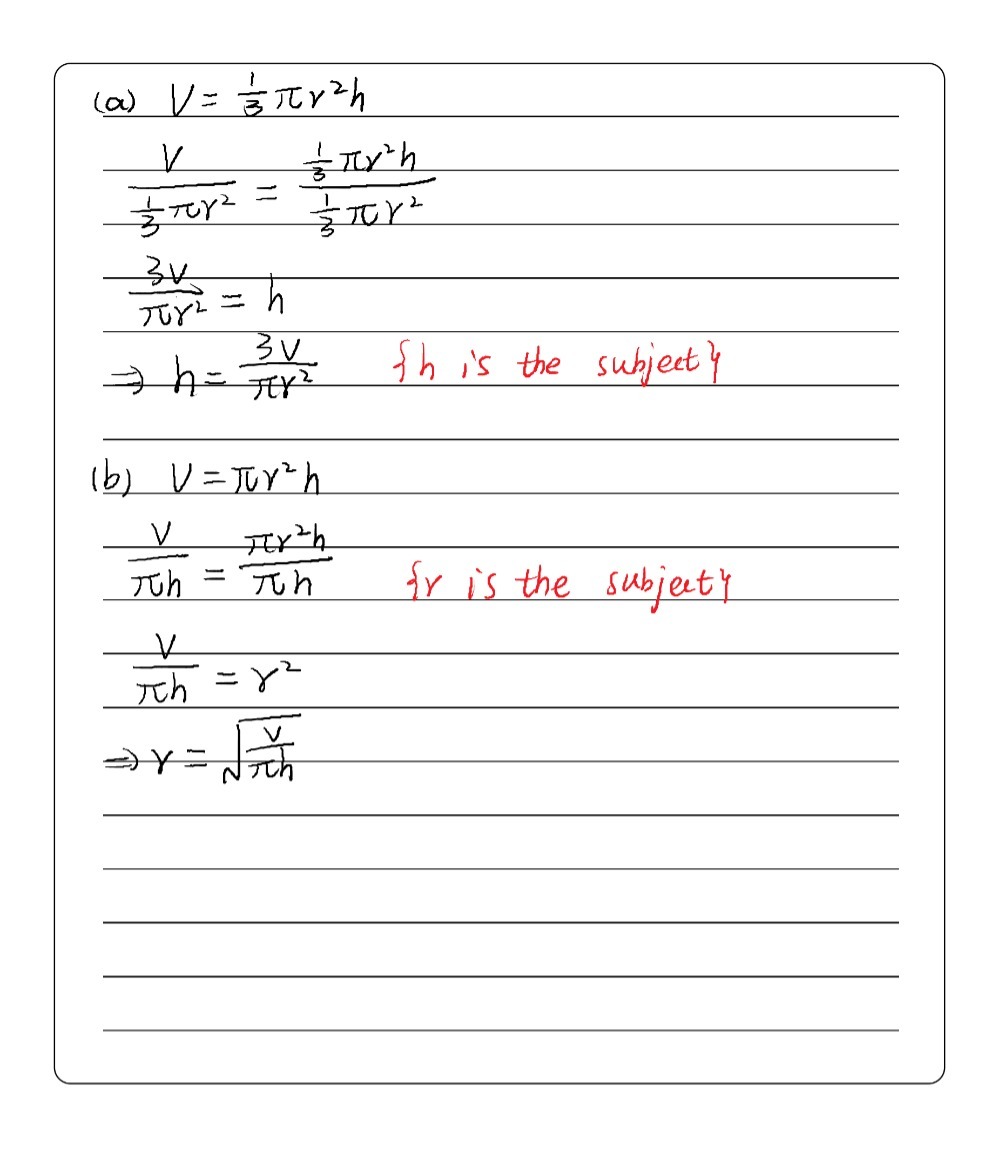 (a) V = 1/3 πr²h
V / (1/3 πr²) = (1/3 πr²h) / (1/3 πr²)
3V / πr² = h
⇒ h = 3V / πr² {h is the subject}
(b) V = πr²h
V / πh = πr²h / πh {r is the subject}
V / πh = r²
⇒ r = √(V / πh)